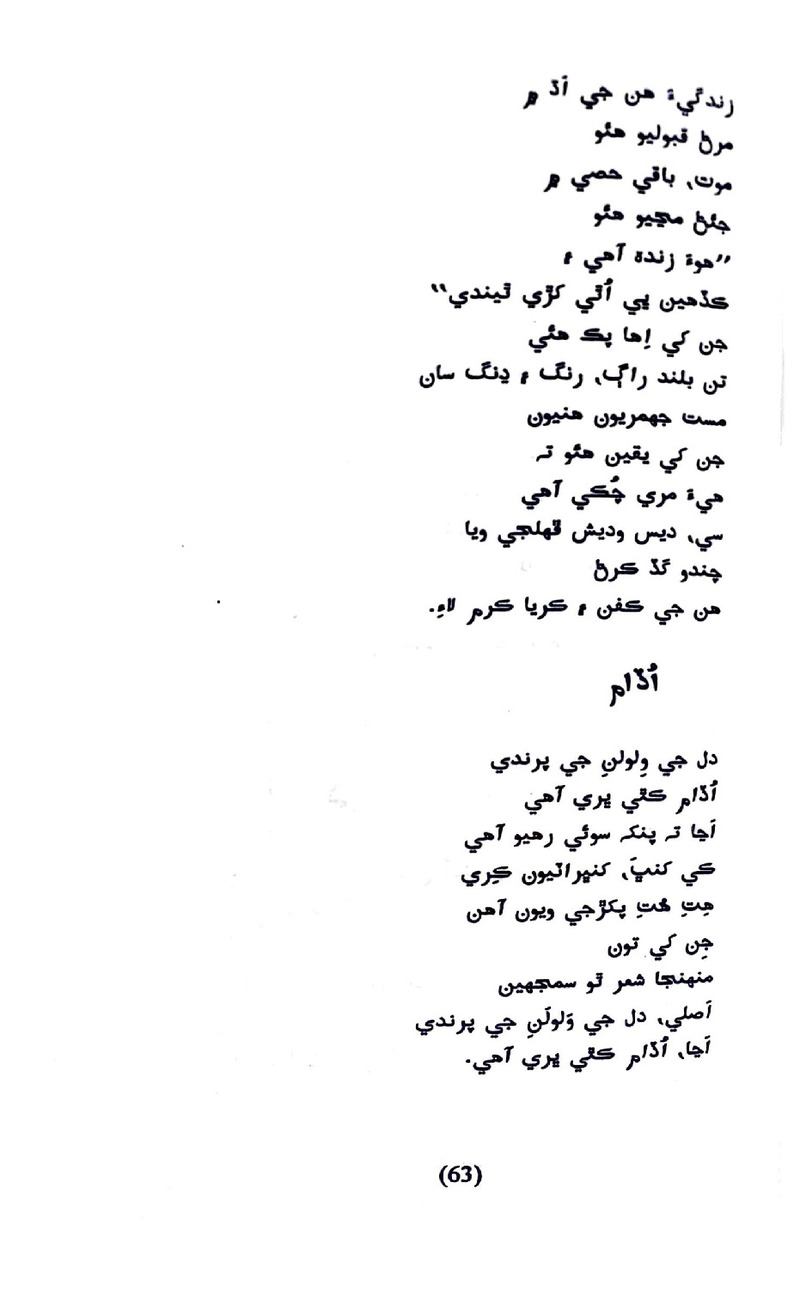 زندگيءَ هن جي اَڌ ۾
مرڻ قبوليو هئو
موت، باقي حصي ۾
جئڻ مڃيو هئو
”هوءَ زندهه آهي ۽
ڪڏهين ڀي اُٿي کڙي ٿيندي“
جن کي اِها پڪ هئي
تن بلند راڳ، رنگ ۽ ڍنگ سان
مست جهمريون هنيون
جن کي يقين هئو تہ
هيءَ مري چُڪي آهي
سي، ديس وديش ڦهلجي ويا
چندو گڏ ڪرڻ
هن جي ڪفن ۽ ڪريا ڪرم لاءِ.
اُڏام
دل جي وِلولنِ جي پرندي
اُڏام ڪٿي ڀري آهي
اَڃا تہ پنکہ سوئي رهيو آهي
ڪي کنڀَ، کنڀراٽيون ڪِري
هِتِ هُتِ پکڙجي ويون آهن
جِن کي تون
منهنجا شعر ٿو سمجهين
اَصلي، دل جي وَلولَنِ جي پرندي
اَڃا، اُڏام ڪٿي ڀري آهي.
(63)